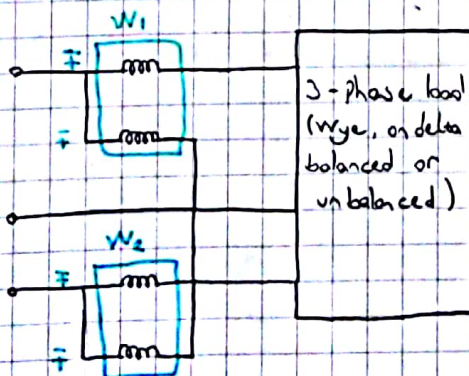 W1
∓
∓
3-phase load
(Wye, or delta
balanced or
unbalanced)
W2
∓
∓